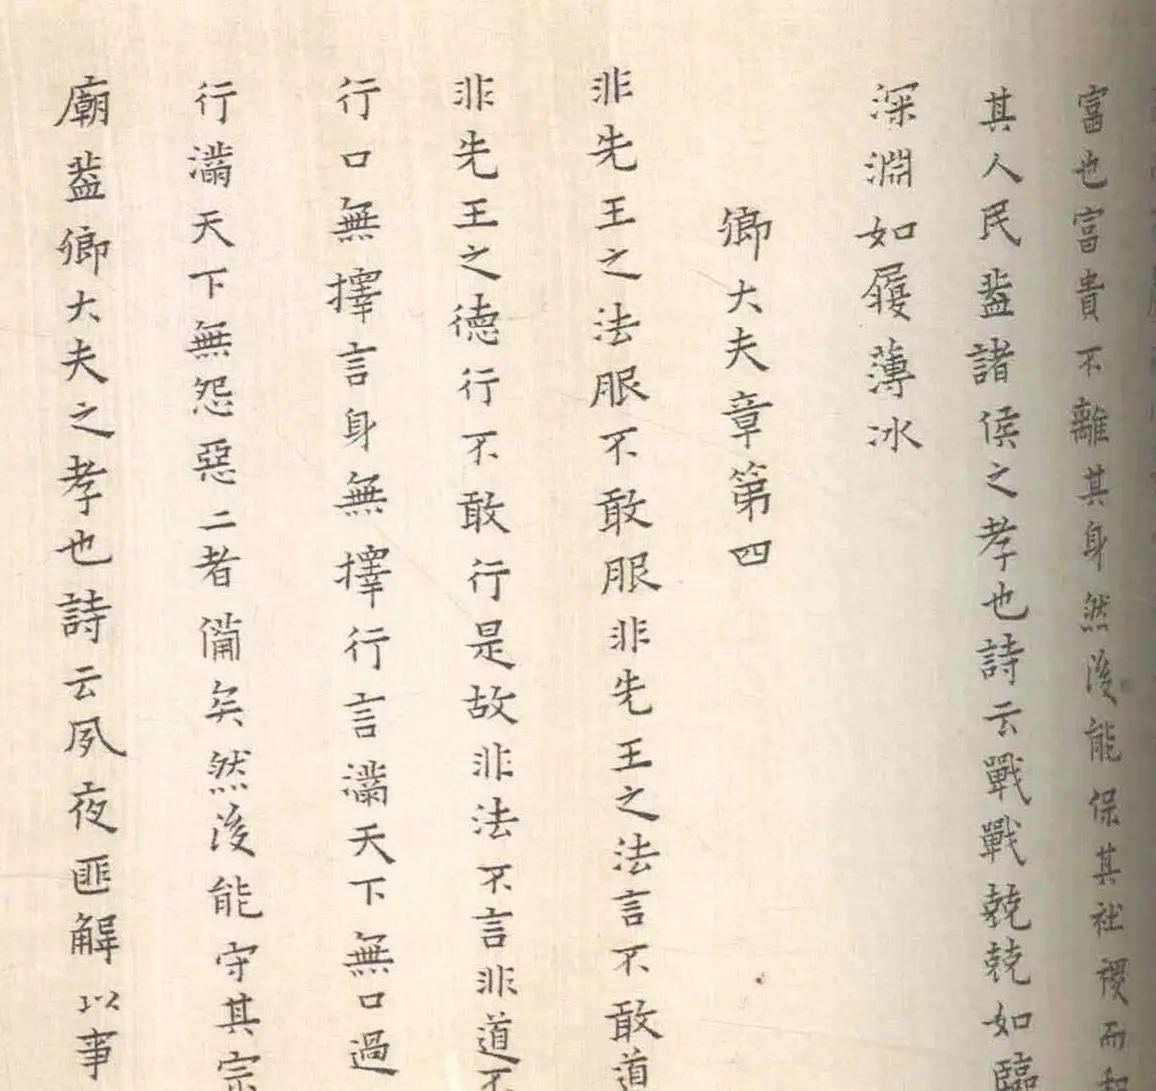 富也富貴不離其身然後能保其社稷而和
其人民蓋諸侯之孝也詩云戰戰兢兢如臨
深淵如履薄冰
卿大夫章第四
非先王之法服不敢服非先王之法言不敢道
非先王之德行不敢行是故非法不言非道不
行口無擇言身無擇行言滿天下無口過
行滿天下無怨惡二者備矣然後能守其宗
廟蓋卿大夫之孝也詩云夙夜匪解以事